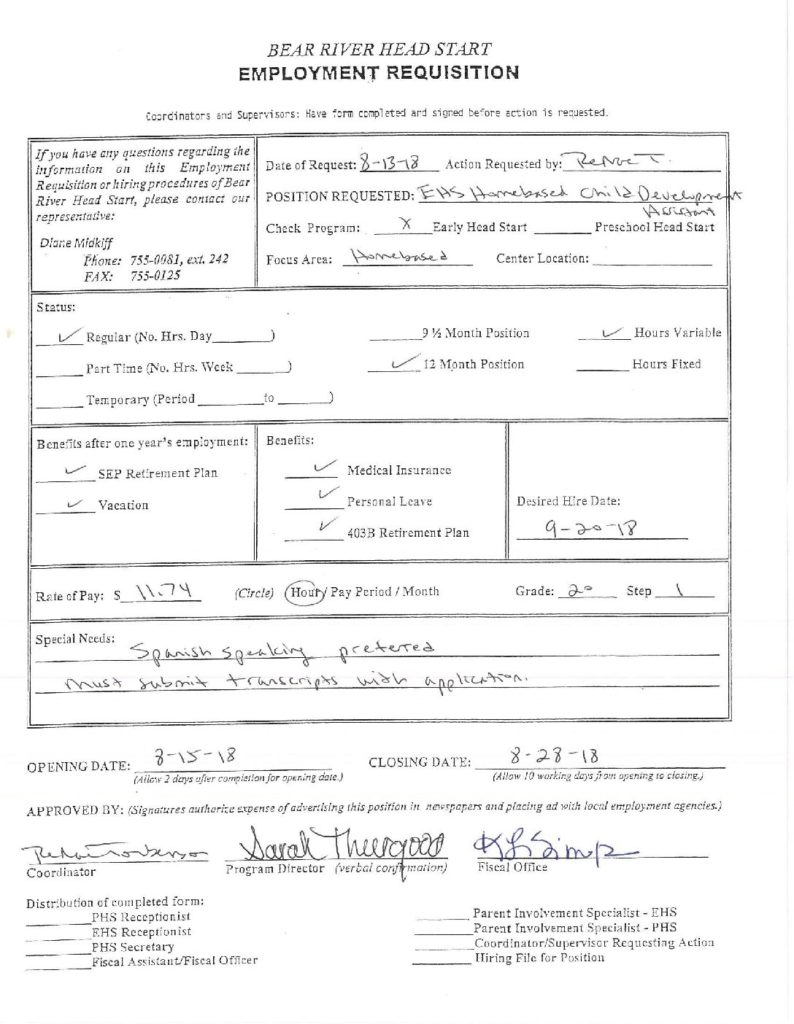 BEAR RIVER HEAD START
EMPLOYMENT REQUISITION
Coordinators and Supervisors: Have form completed and signed before action is requested.
If you have any questions regarding the
information on this Employment
Requisition or hiring procedures of Bear
River Head Start, please contact our
representative:
Diane Midkiff
Phone: 755-0081, ext. 242
FAX: 755-0125
Date of Request: 8-13-18 Action Requested by: ReNae T.
POSITION REQUESTED: EHS Homebased Child Development
Assistant
Check Program: X Early Head Start ______ Preschool Head Start
Focus Area: Homebased Center Location: ______
Status:
✓ Regular (No. Hrs. Day______) ______ 9 ½ Month Position ✓ Hours Variable
______ Part Time (No. Hrs. Week ______) ✓ 12 Month Position ______ Hours Fixed
______ Temporary (Period ______ to ______)
Benefits after one year's employment:
✓ SEP Retirement Plan
✓ Vacation
Benefits:
✓ Medical Insurance
✓ Personal Leave
✓ 403B Retirement Plan
Desired Hire Date:
9-20-18
Rate of Pay: $ 11.74 (Circle) Hour/ Pay Period / Month Grade: 20 Step 1
Special Needs:
Spanish speaking preferred
Must submit transcripts with application.
OPENING DATE: 8-15-18 CLOSING DATE: 8-28-18
(Allow 2 days after completion for opening date.) (Allow 10 working days from opening to closing.)
APPROVED BY: (Signatures authorize expense of advertising this position in newspapers and placing ad with local employment agencies.)
Sarah Thurgood
Coordinator Program Director (verbal confirmation) Fiscal Office
Distribution of completed form:
______ PHS Receptionist
______ EHS Receptionist
______ PHS Secretary
______ Fiscal Assistant/Fiscal Officer
______ Parent Involvement Specialist - EHS
______ Parent Involvement Specialist - PHS
______ Coordinator/Supervisor Requesting Action
______ Hiring File for Position